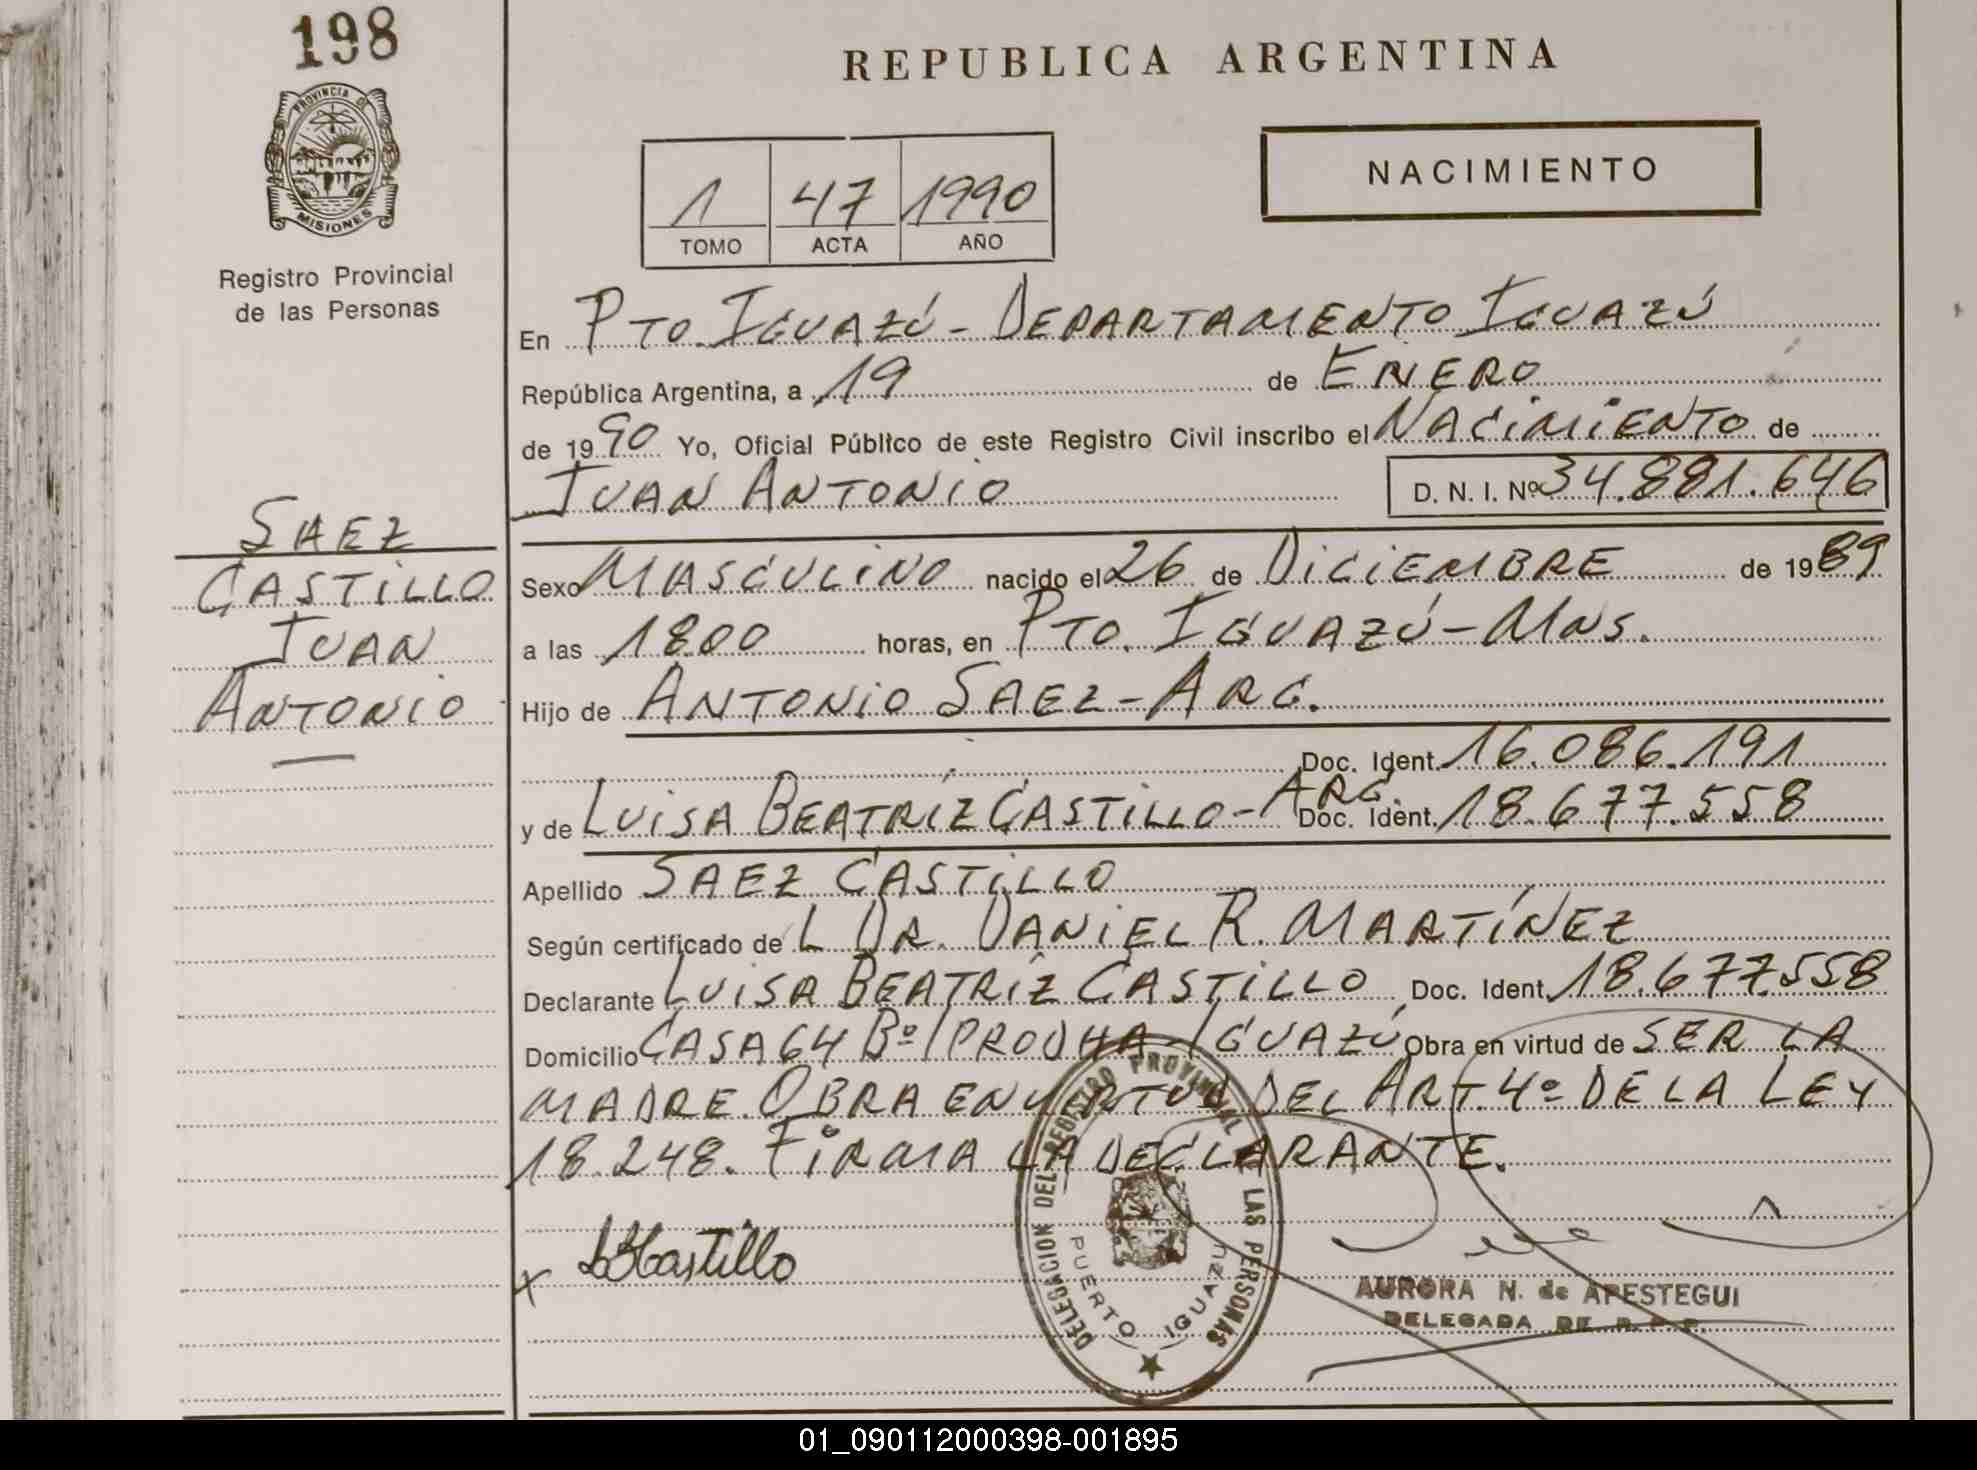 198
REPUBLICA ARGENTINA
PROVINCIA DE
MISIONES
Registro Provincial
de las Personas
1 47 1990
TOMO ACTA AÑO
NACIMIENTO
En PTO. IGUAZÚ - DEPARTAMENTO IGUAZÚ
República Argentina, a 19 de ENERO
de 1990 Yo, Oficial Público de este Registro Civil inscribo el NACIMIENTO de
JUAN ANTONIO D. N. I. Nº 34.881.646
SAEZ
CASTILLO
JUAN
ANTONIO
Sexo MASCULINO nacido el 26 de DICIEMBRE de 1989
a las 1800 horas, en PTO. IGUAZÚ - MNS.
Hijo de ANTONIO SAEZ - ARG.
Doc. Ident. 16.086.191
y de LUISA BEATRÍZ CASTILLO - ARG. Doc. Ident. 18.677.558
Apellido SAEZ CASTILLO
Según certificado de L DR. DANIEL R. MARTÍNEZ
Declarante LUISA BEATRÍZ CASTILLO Doc. Ident. 18.677.558
Domicilio CASA 64 Bº IPRODHA - IGUAZÚ Obra en virtud de SER LA
MADRE. OBRA EN VIRTUD DEL ART. 4º DE LA LEY
18.248. FIRMA LA DECLARANTE.
x LBCastillo
DELEGACION DEL REGISTRO PROVINCIAL DE LAS PERSONAS
PUERTO IGUAZU
AURORA N. de APESTEGUI
DELEGADA DE R. P. P.
01_090112000398-001895